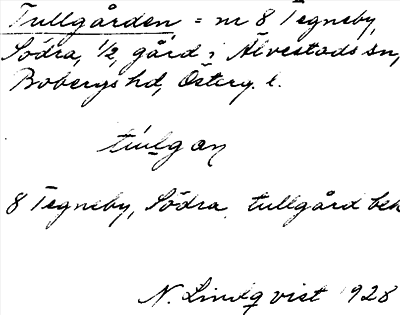 Tullgården = nr 8 Tegneby,
Södra, 1/2, gård i Älvestads sn,
Bobergs hd, Österg. l.
8 Tegneby, Södra, tullgård bek
N. Lindqvist 1928